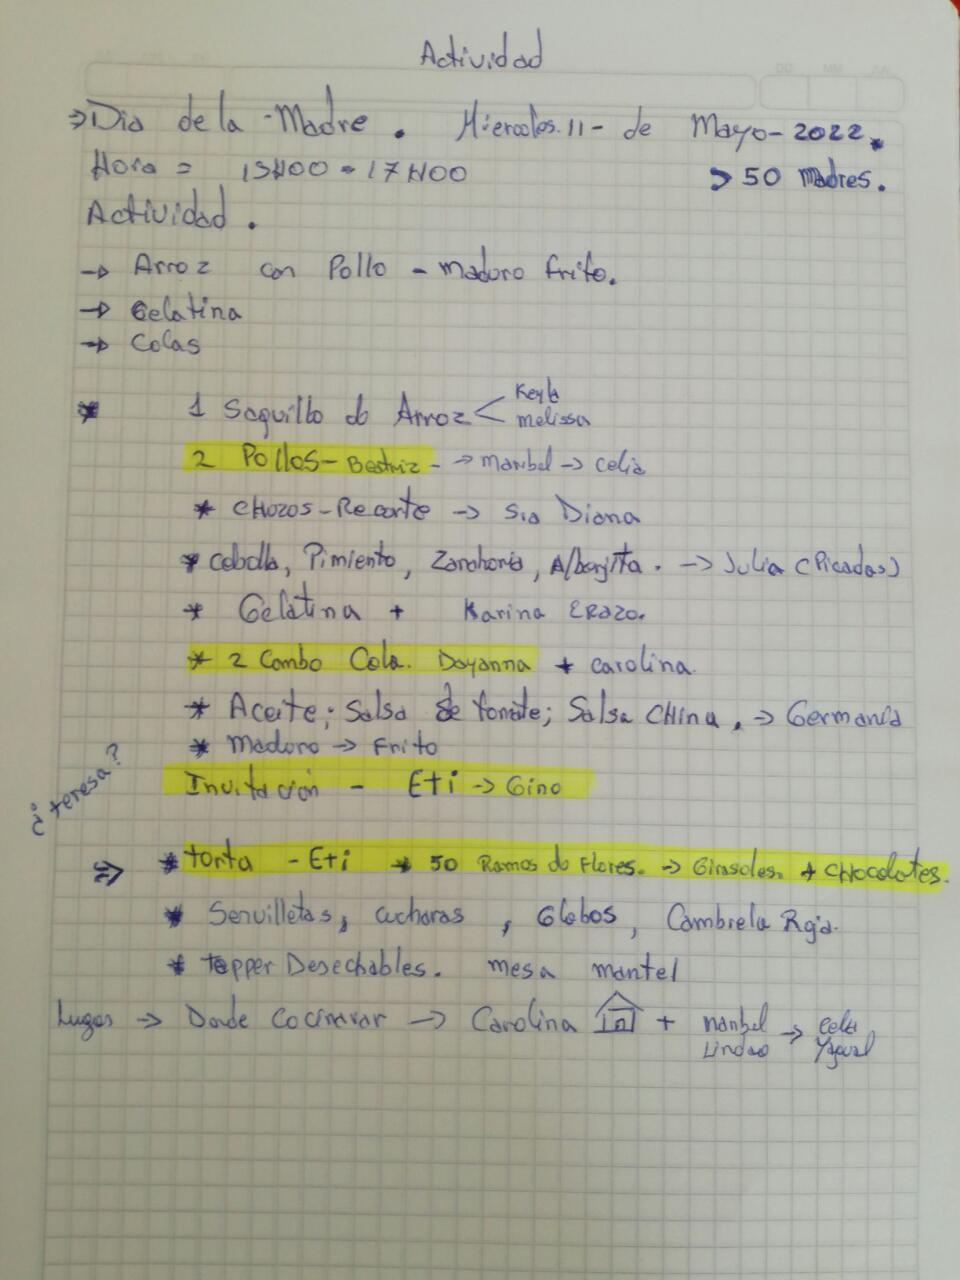 Actividad
⇒ Dia de la - Madre . Miercoles. 11 - de Mayo - 2022.
Hora = 15H00 - 17H00 > 50 madres.
Actividad .
→ Arroz con Pollo - maduro frito.
→ Gelatina
→ Colas
* 1 Saquillo de Arroz < Keyla
melissa
2 Pollos - Beatriz - → maribel → celia
* CHozos - Recorte → Sra Diana
* Cebolla, Pimiento, Zanahoria, Alberjita . → Julia (Picadas)
* Gelatina + Karina Erazo.
* 2 Combo Cola. Dayanna + carolina.
* Aceite; Salsa de tomate; Salsa CHina , → Germania
* Maduro → Frito
¿teresa?
Invitación - Eti → Gino
⇒ * torta - Eti * 50 Ramos de Flores. → Girasoles. + CHocolates.
* Servilletas, cucharas , Globos , Cambrela Roja.
* tapper Desechables. mesa mantel
Lugar → Donde Cocinar → Carolina + maribel → Celia
Lindao Yagual